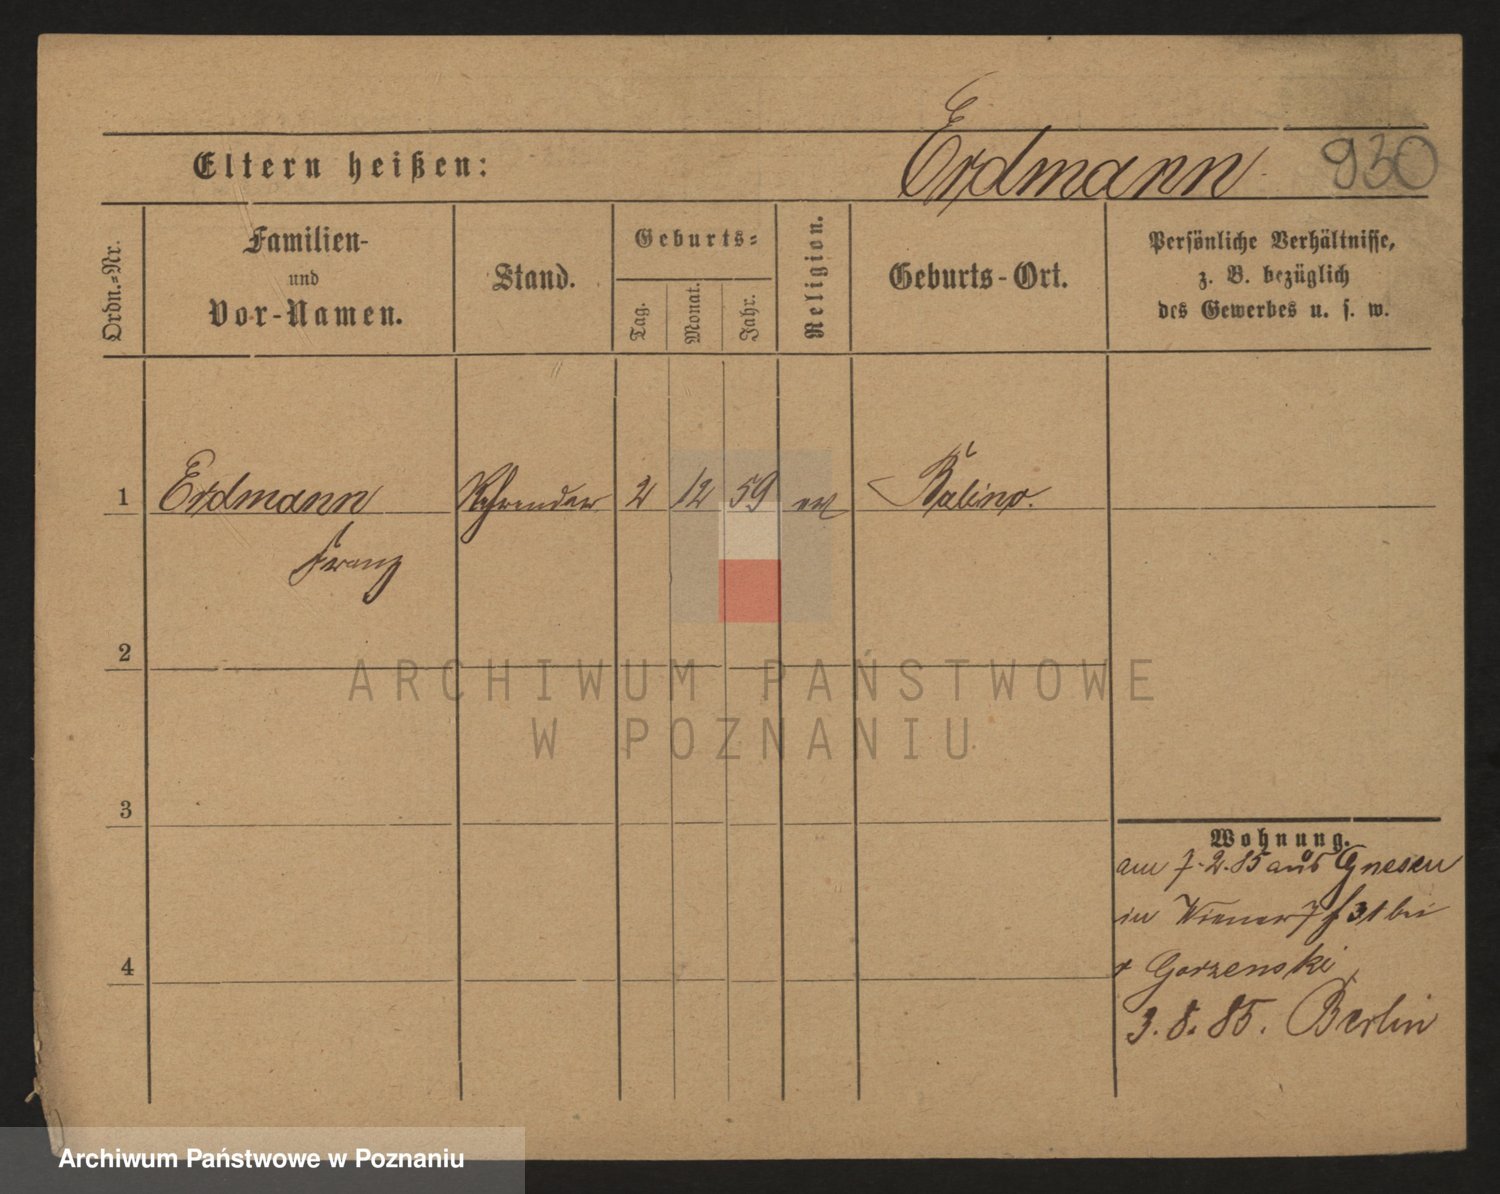 Eltern heißen: Erdmann 930
Ordn.-Nr.
Familien-
und
Vor-Namen.
Stand.
Geburts-
Tag.
Monat.
Jahr.
Religion.
Geburts-Ort.
Persönliche Verhältnisse,
z. B. bezüglich
des Gewerbes u. s. w.
1 Erdmann 2 12 59 ev Balino.
Franz
2
ARCHIWUM PAŃSTWOWE
W POZNANIU
3
Wohnung.
am 7.2.85 aus Gnesen
in 31 bei
4
Gorzenski
3.8.85. Berlin
Archiwum Państwowe w Poznaniu